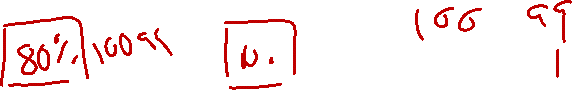 80% 100 99 N. 100 99
1